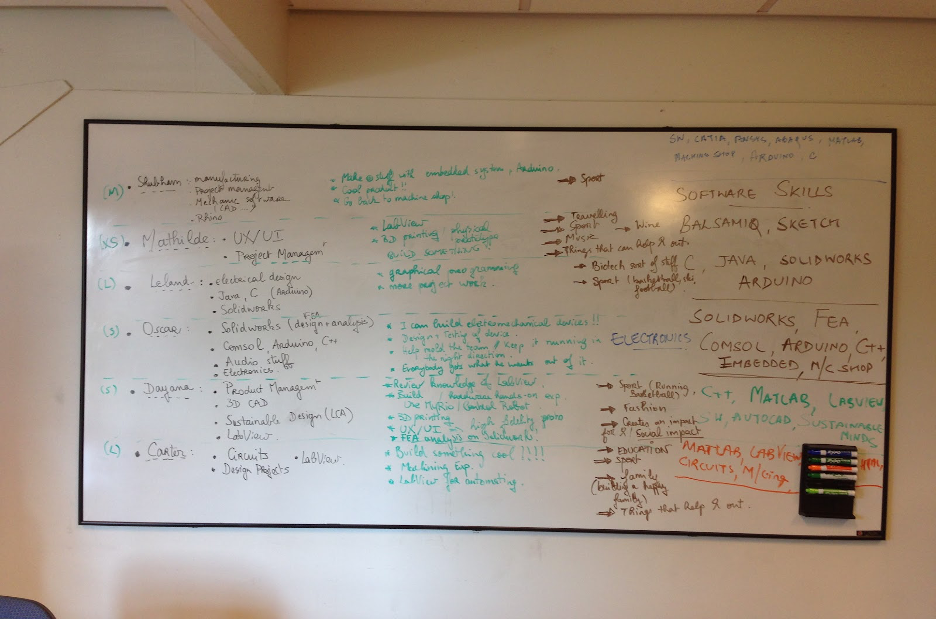 SW, CATIA, ANSYS, ABAQUS, MATLAB,
MACHINE SHOP, ARDUINO, C
SOFTWARE SKILLS
(M) • Shubham: manufacturing
Project management
Mechanic software
(CAD
• Rhino
• Make stuff with embedded system, Arduino.
• Cool product!!
• Go back to machine shop!
→ Sport
(XS) • Mathilde: • UX/UI
• Project Managemt
• LabView
• 3D printing / physical prototype
BUILD SOMETHING
→ Travelling
→ Sport → Wine
→ Music
→ Things that can help & out
BALSAMIQ, SKETCH
(L) • Leland: • electrical design
• Java, C (Arduino)
• Solidworks
• graphical programming
• more project work.
→ Biotech sort of stuff
→ Sport (basketball, football)
C, JAVA, SOLIDWORKS
ARDUINO
(S) • Oscar: • Solidworks (design + analysis) FEA
• Comsol, Arduino, C++
• Audio stuff
• Electronics.
• I can build electromechanical devices!!
• Design + Testing of device.
• Help mold the team & keep it running in
the right direction.
• Everybody gets what he wants out of it.
ELECTRONICS
SOLIDWORKS, FEA,
COMSOL, ARDUINO, C++,
EMBEDDED, M/C SHOP
(S) • Dayana: • Product Managemt
• 3D CAD
• Sustainable Design (LCA)
• LabView.
• Review knowledge of LabView.
• Build / hardware hands-on exp.
Use MyRio / Robot
• 3D printing
• UX/UI high fidelity proto
• FEA analysis on Solidworks.
→ Sport (Running, basketball)
→ Fashion
→ Creates an impact
for & / Social impact
C++, MATLAB, LABVIEW
SW, AUTOCAD, SUSTAINABLE
MINDS
(L) • Carter: • Circuits • LabView.
• Design Projects
• Build something cool !!!!
• Machining Exp.
• LabView for automating.
→ EDUCATION
→ SPORT
→ family
(building a happy
family)
→ Things that help & out.
MATLAB, LABVIEW
CIRCUITS, M/Cing